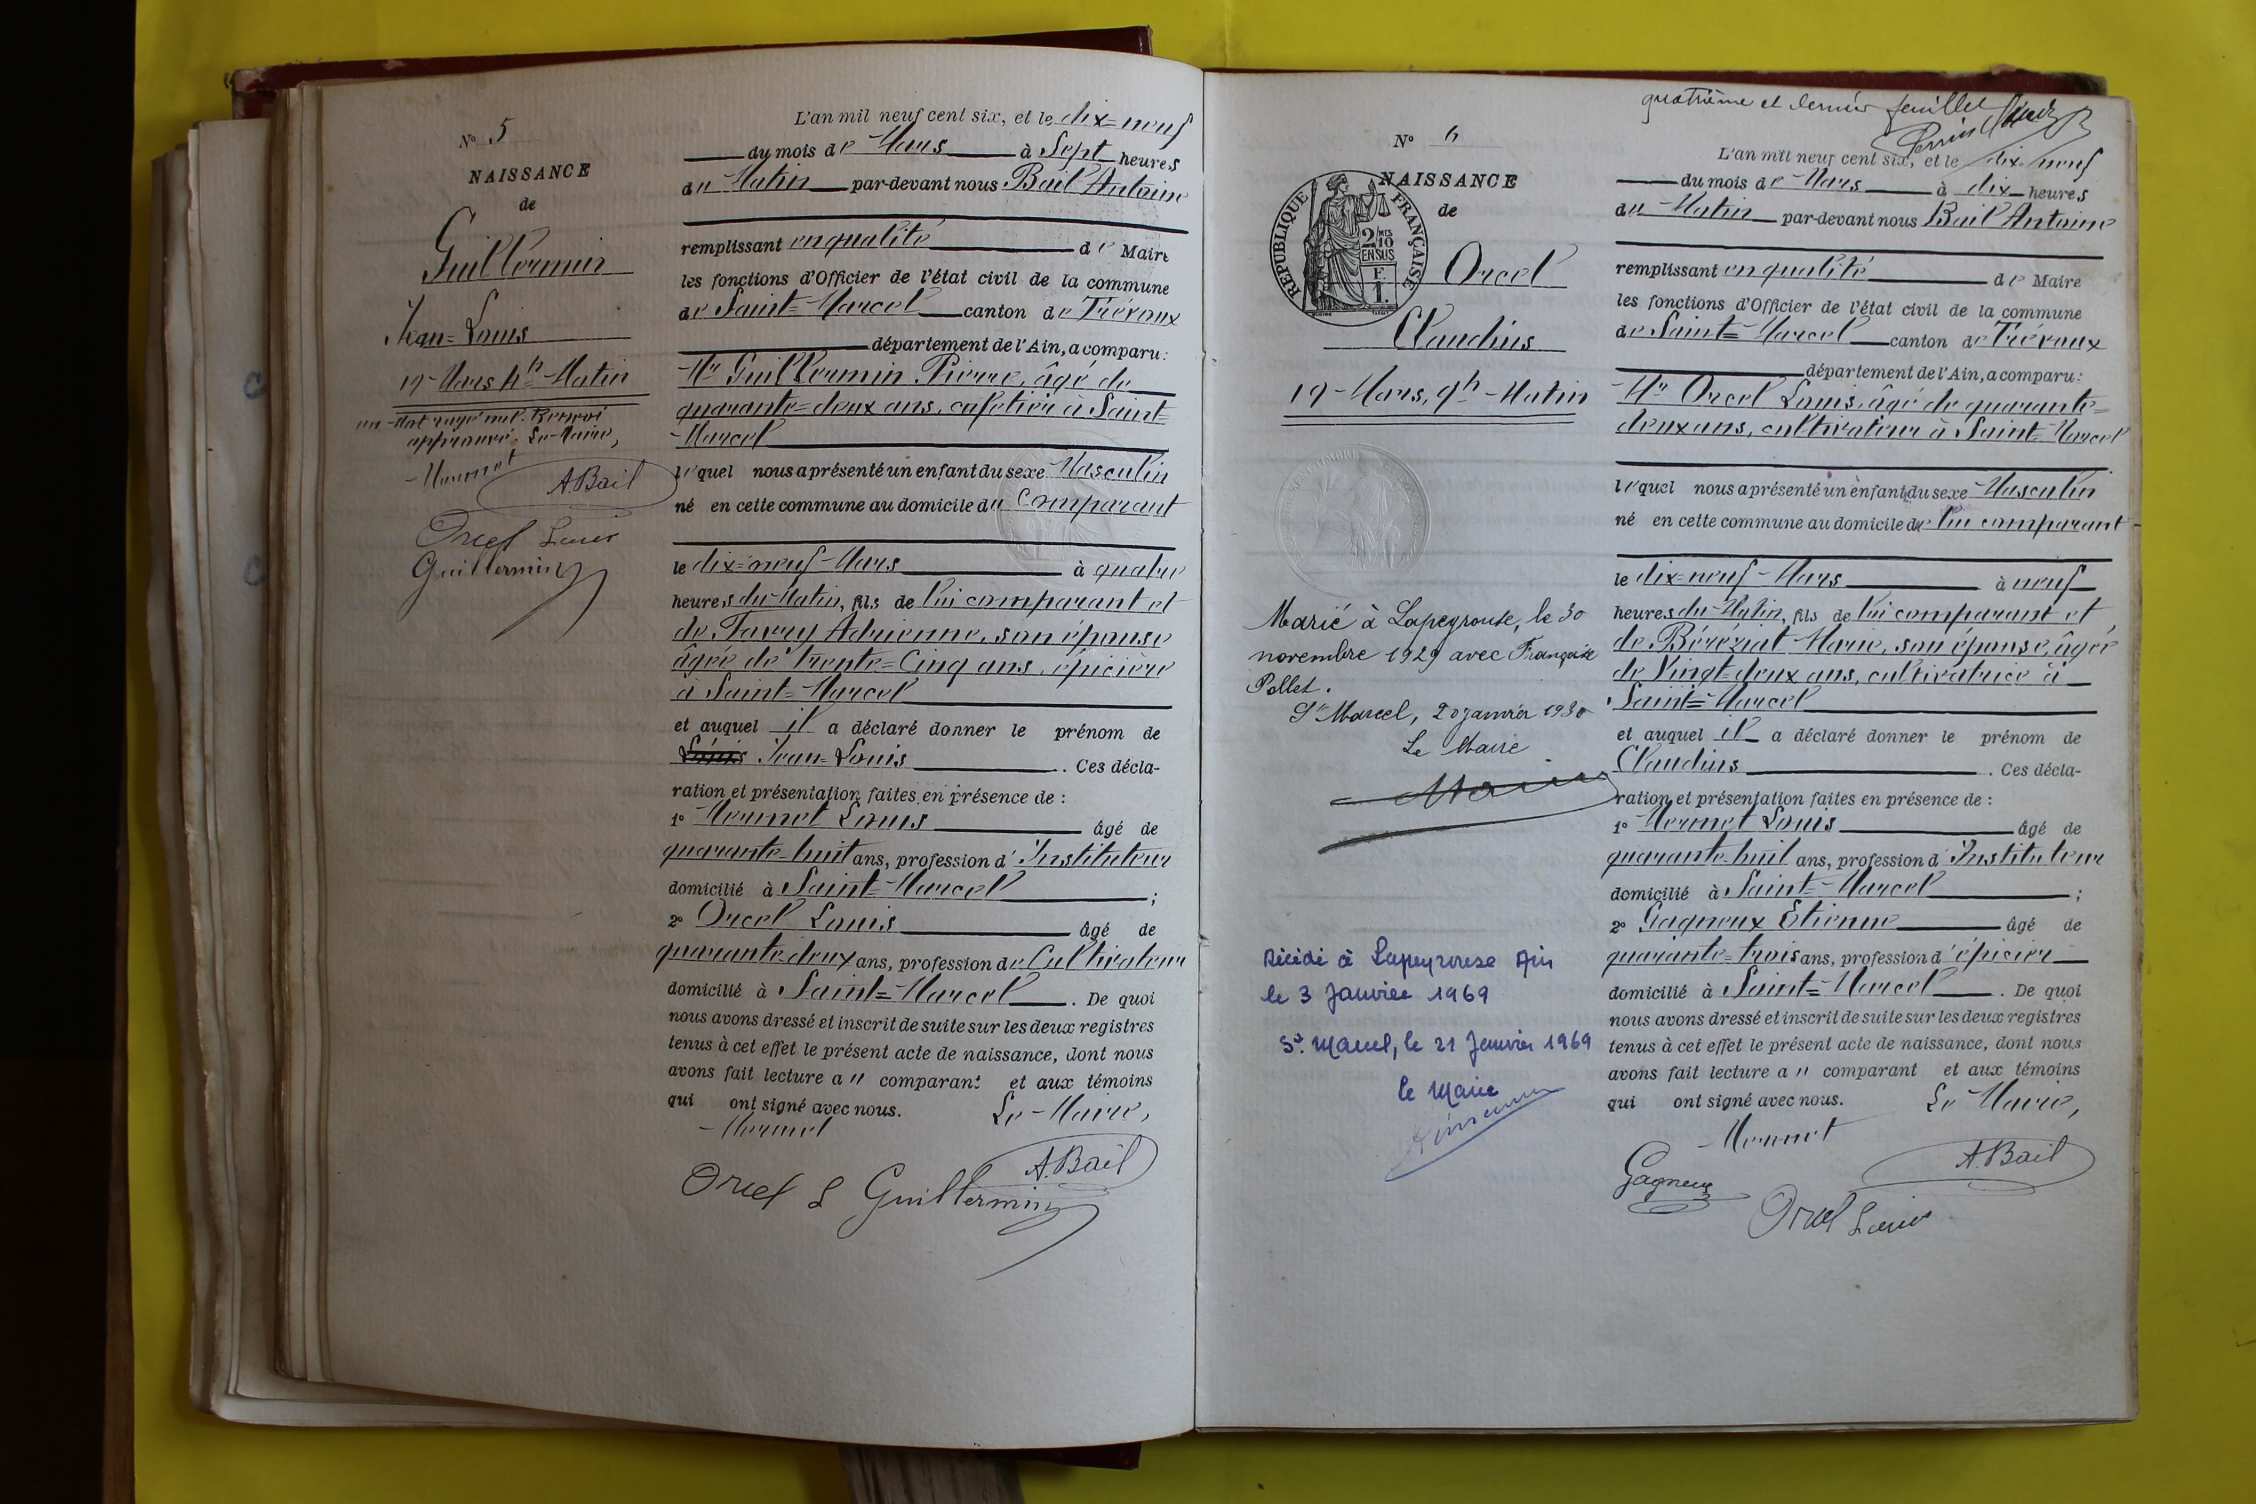 N° 5
NAISSANCE
de
Guillermin
Jean=Louis
19 Mars 4h Matin
un Mot rayé nul. Renvoi
approuvé. Le Maire,
Mermet
A. Bail
Orcel Louis
Guillermin
L'an mil neuf cent six, et le dix=neuf
du mois de Mars à Sept heures
du Matin par-devant nous Bail Antoine
remplissant en qualité de Maire
les fonctions d'Officier de l'état civil de la commune
de Saint=Marcel canton de Trévoux
département de l'Ain, a comparu:
Mr Guillermin Pierre, âgé de
quarante=deux ans, cafetier à Saint=
Marcel
lequel nous a présenté un enfant du sexe Masculin
né en cette commune au domicile du Comparant
le dix=neuf Mars à quatre
heures du Matin, fils de lui comparant et
de Favry Adrienne, son épouse
âgée de trente=Cinq ans, épicière
à Saint=Marcel
et auquel il a déclaré donner le prénom de
Jean=Louis . Ces décla-
ration et présentation faites en présence de :
1° Mermet Louis âgé de
quarante-huit ans, profession d'Instituteur
domicilié à Saint=Marcel ;
2° Orcel Louis âgé de
quarante-deux ans, profession de Cultivateur
domicilié à Saint=Marcel . De quoi
nous avons dressé et inscrit de suite sur les deux registres
tenus à cet effet le présent acte de naissance, dont nous
avons fait lecture au comparant et aux témoins
qui ont signé avec nous. Le Maire,
Mermet
A. Bail
Orcel L Guillermin
quatrième et dernier feuillet
N° 6
RÉPUBLIQUE FRANÇAISE
2/10 MES
EN SUS
1 F.
NAISSANCE
de
Orcel
Claudius
19 Mars, 9h Matin
Marié à Lapeyrouse, le 30
novembre 1929 avec Françoise
Pollet.
St Marcel, 20 janvier 1930
Le Maire
Décédé à Lapeyrouse Ain
le 3 Janvier 1969
St. Marcel, le 21 Janvier 1969
le Maire
L'an mil neuf cent six, et le dix=neuf
du mois de Mars à dix heures
du Matin par-devant nous Bail Antoine
remplissant en qualité de Maire
les fonctions d'Officier de l'état civil de la commune
de Saint=Marcel canton de Trévoux
département de l'Ain, a comparu:
Mr Orcel Louis, âgé de quarante=
deux ans, cultivateur à Saint=Marcel
lequel nous a présenté un enfant du sexe Masculin
né en cette commune au domicile de lui comparant
le dix=neuf Mars à neuf
heures du Matin, fils de lui comparant et
de Béréziat Marie, son épouse, âgée
de Vingt=deux ans, cultivatrice à
Saint=Marcel
et auquel il a déclaré donner le prénom de
Claudius . Ces décla-
ration et présentation faites en présence de :
1° Mermet Louis âgé de
quarante-huit ans, profession d'Instituteur
domicilié à Saint=Marcel ;
2° Gagneux Etienne âgé de
quarante=trois ans, profession d'épicier
domicilié à Saint=Marcel . De quoi
nous avons dressé et inscrit de suite sur les deux registres
tenus à cet effet le présent acte de naissance, dont nous
avons fait lecture au comparant et aux témoins
qui ont signé avec nous. Le Maire,
Mermet
A. Bail
Gagneux
Orcel Louis